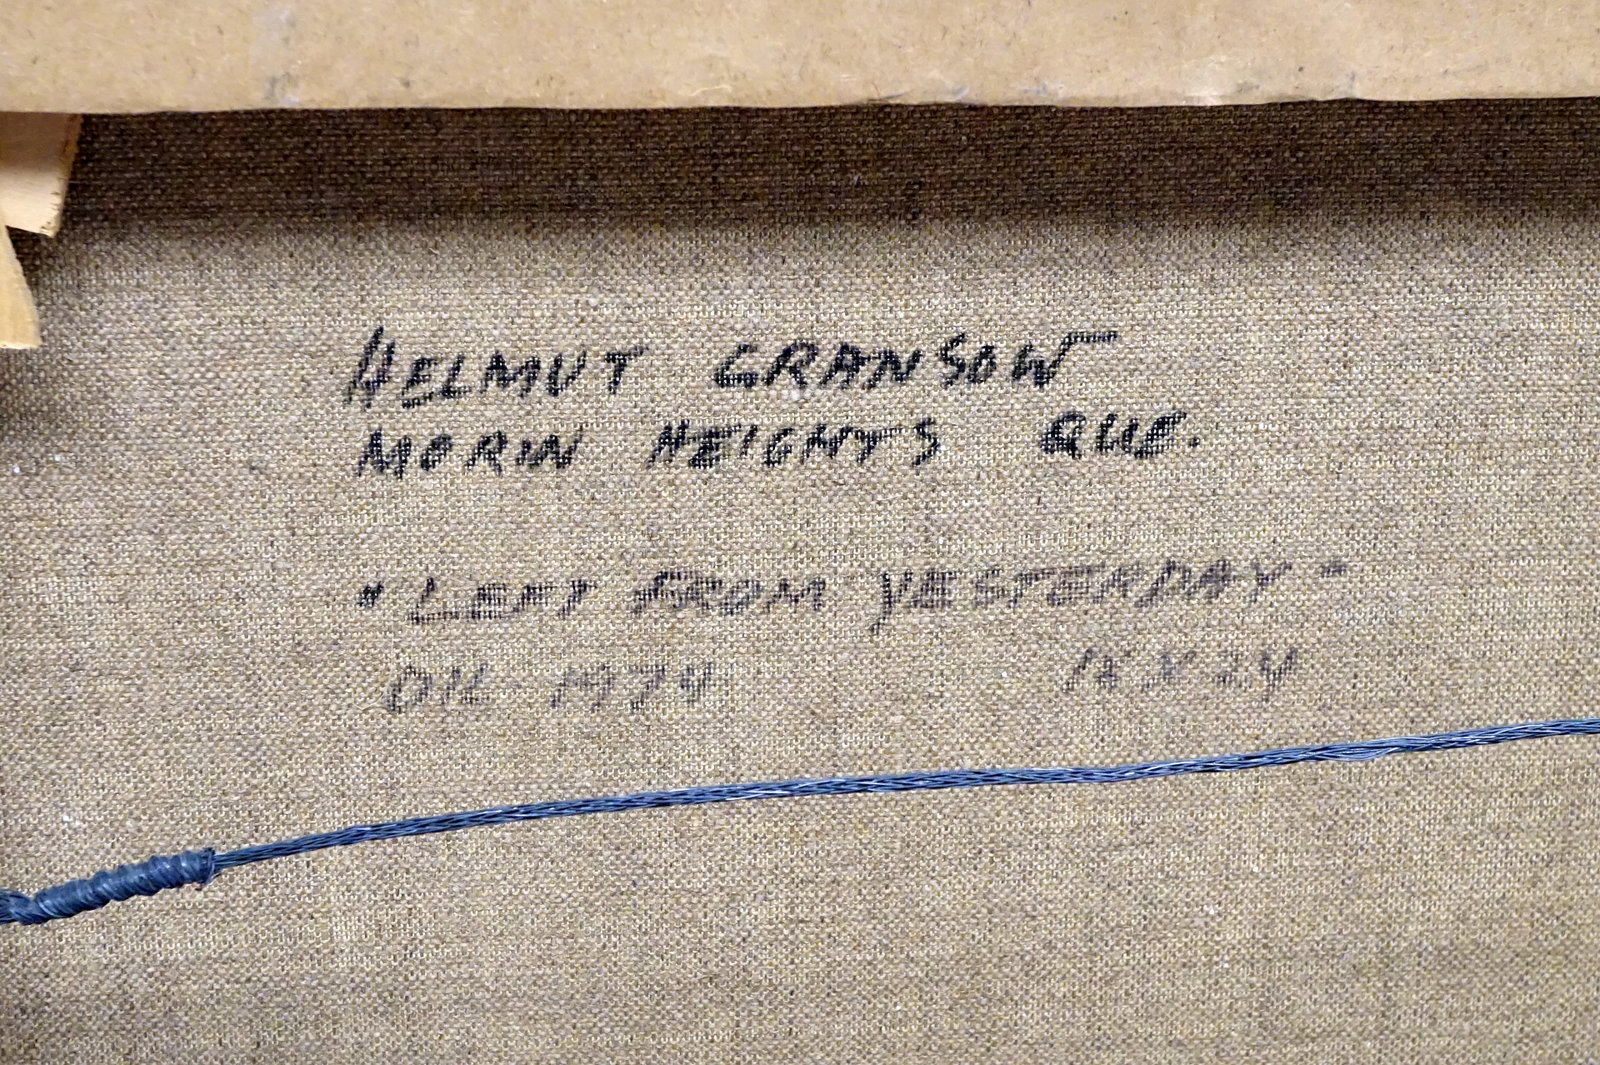 HELMUT GRANSOW
MORIN HEIGHTS QUE.
"LEFT FROM YESTERDAY"
OIL 1974 18 X 24